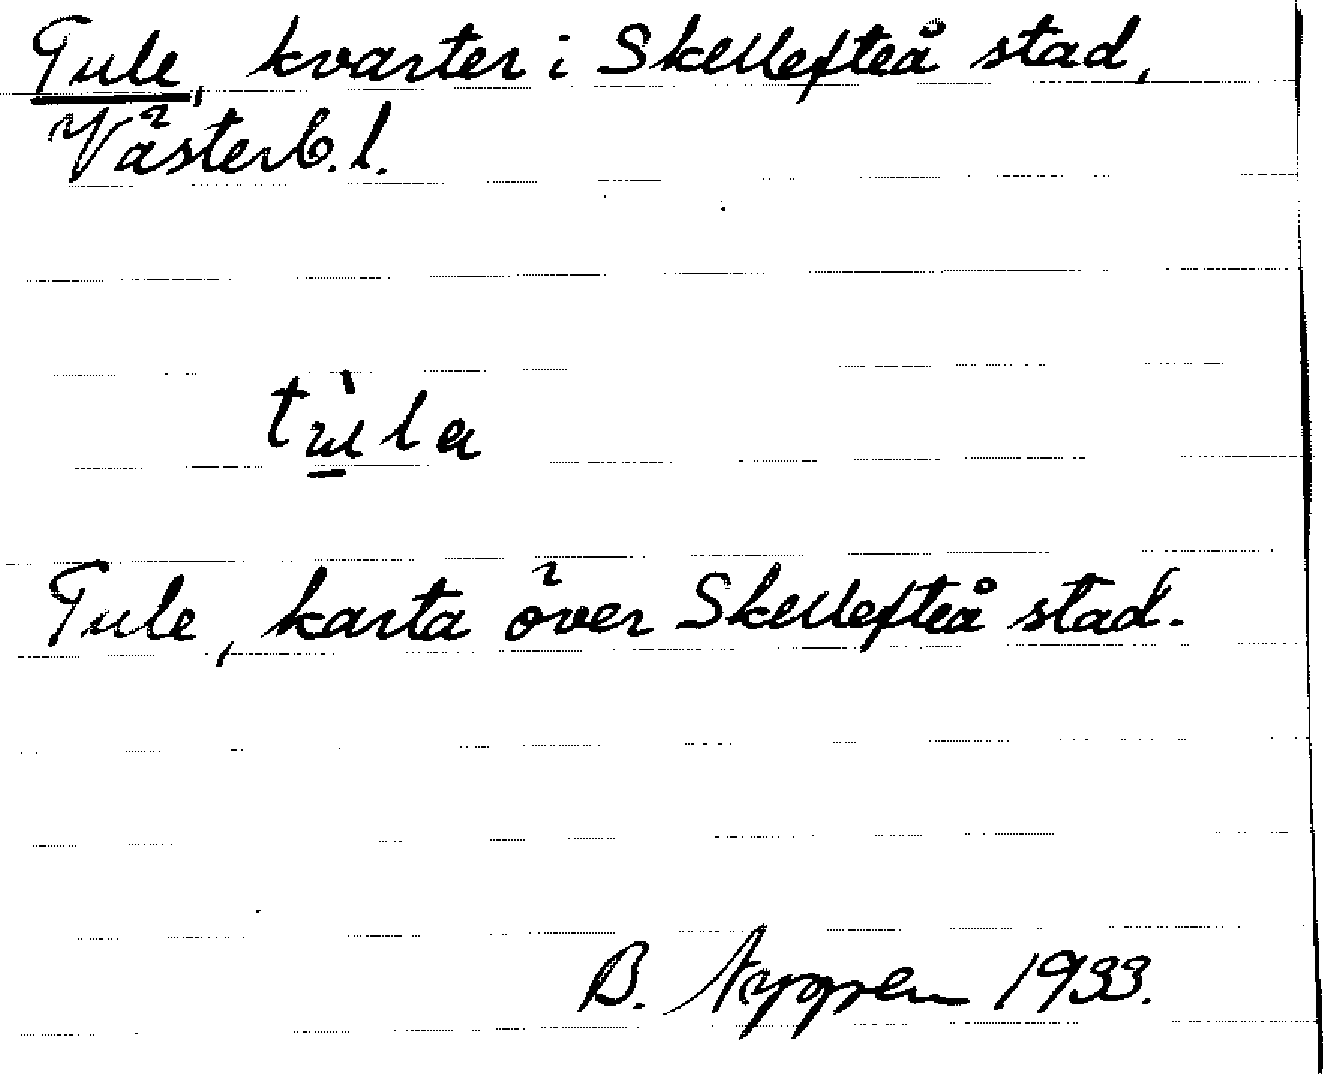 Tule, kvarter i Skellefteå stad,
Västerb. l.
tùla
Tule, karta över Skellefteå stad.
B. Nygren 1933.